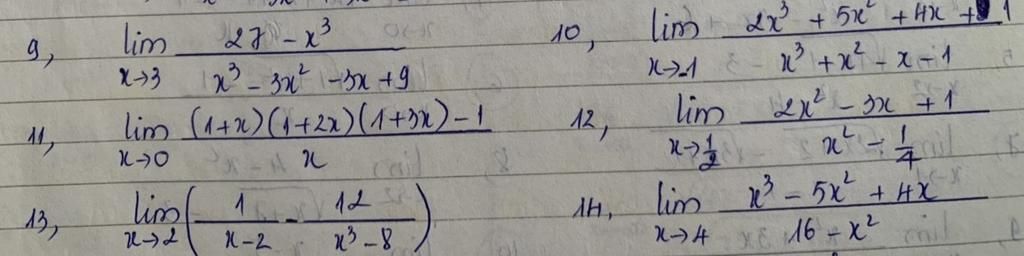 9, lim x→3 (27 - x³)/(x³ - 3x² - 3x + 9) 10, lim x→-1 (2x³ + 5x² + 4x + 1)/(x³ + x² - x - 1)
11, lim x→0 ((1+x)(1+2x)(1+3x) - 1)/x 12, lim x→1/2 (2x² - 3x + 1)/(x² - 1/4)
13, lim x→2 (1/(x-2) - 12/(x³-8)) 14. lim x→4 (x³ - 5x² + 4x)/(16 - x²)